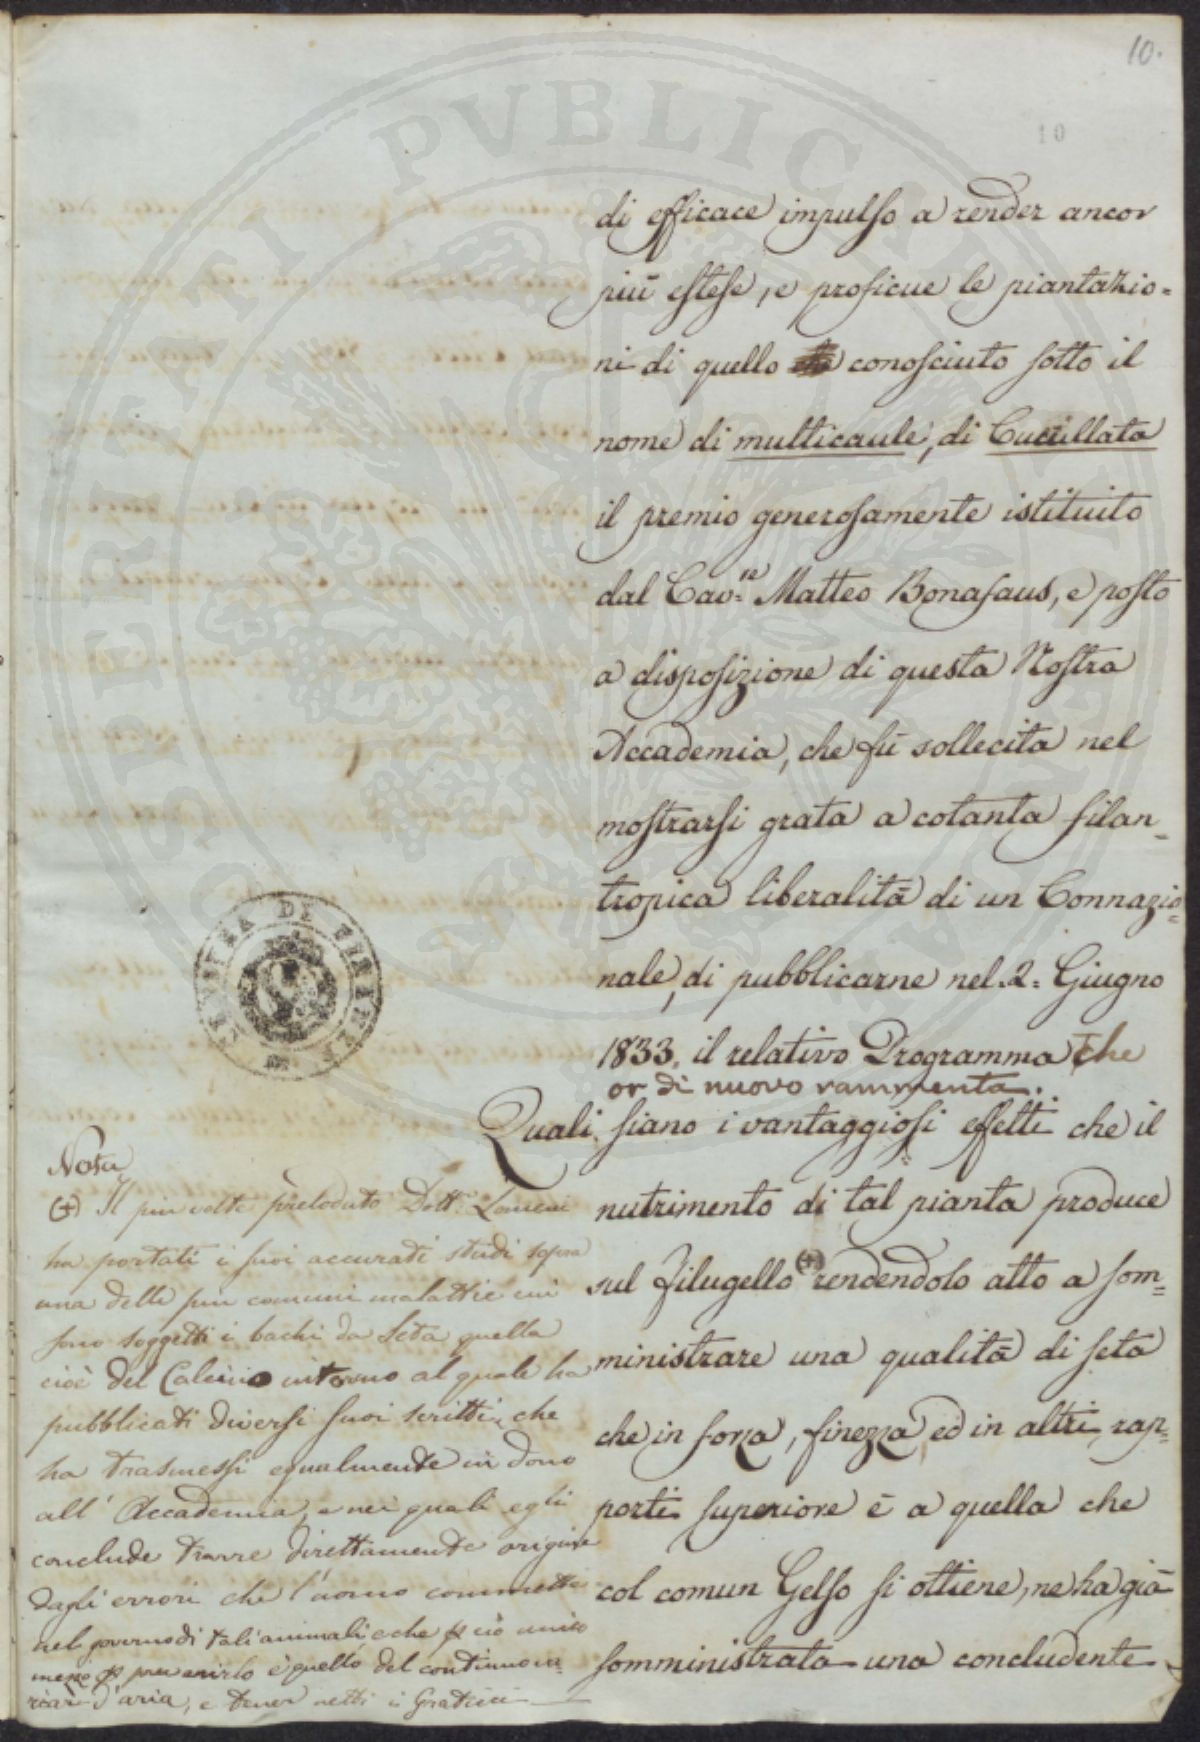 10.
10
di efficace impulso a render ancor
più estese, e proficue le piantazio=
ni di quello conosciuto sotto il
nome di multicaule, di Cucullata
il premio generosamente istituito
dal Cav.re Matteo Bonafaus, e posto
a disposizione di questa Nostra
Accademia, che fù sollecita nel
mostrarsi grata a cotanta filan=
tropica liberalità di un Connazio=
nale, di pubblicarne nel 2. Giugno
1833. il relativo Programma che
or di nuovo rammenta.
Quali siano i vantaggiosi effetti che il
nutrimento di tal pianta produce
sul Filugello (+) rendendolo atto a som=
ministrare una qualità di seta
che in forza, finezza, ed in altri rap=
porti superiore è a quella che
col comun Gelso si ottiene, ne ha già
somministrata una concludente
Nota
(+) Il più volte prelodato Dott. Lomeni
ha portati i suoi accurati studi sopra
una delle più comuni malattie cui
sono soggetti i bachi da Seta quella
cioè del Calcino intorno al quale ha
pubblicati diversi suoi scritti, che
ha trasmessi egualmente in dono
all' Accademia, e nei quali egli
conclude trarre direttamente origine
dagli errori che l'uomo commette
nel governo di tali animali, e che p ciò unico
mezzo p prevenirlo è quello del continuo va=
riar d'aria, e tener netti i Graticci
PVBLICAE